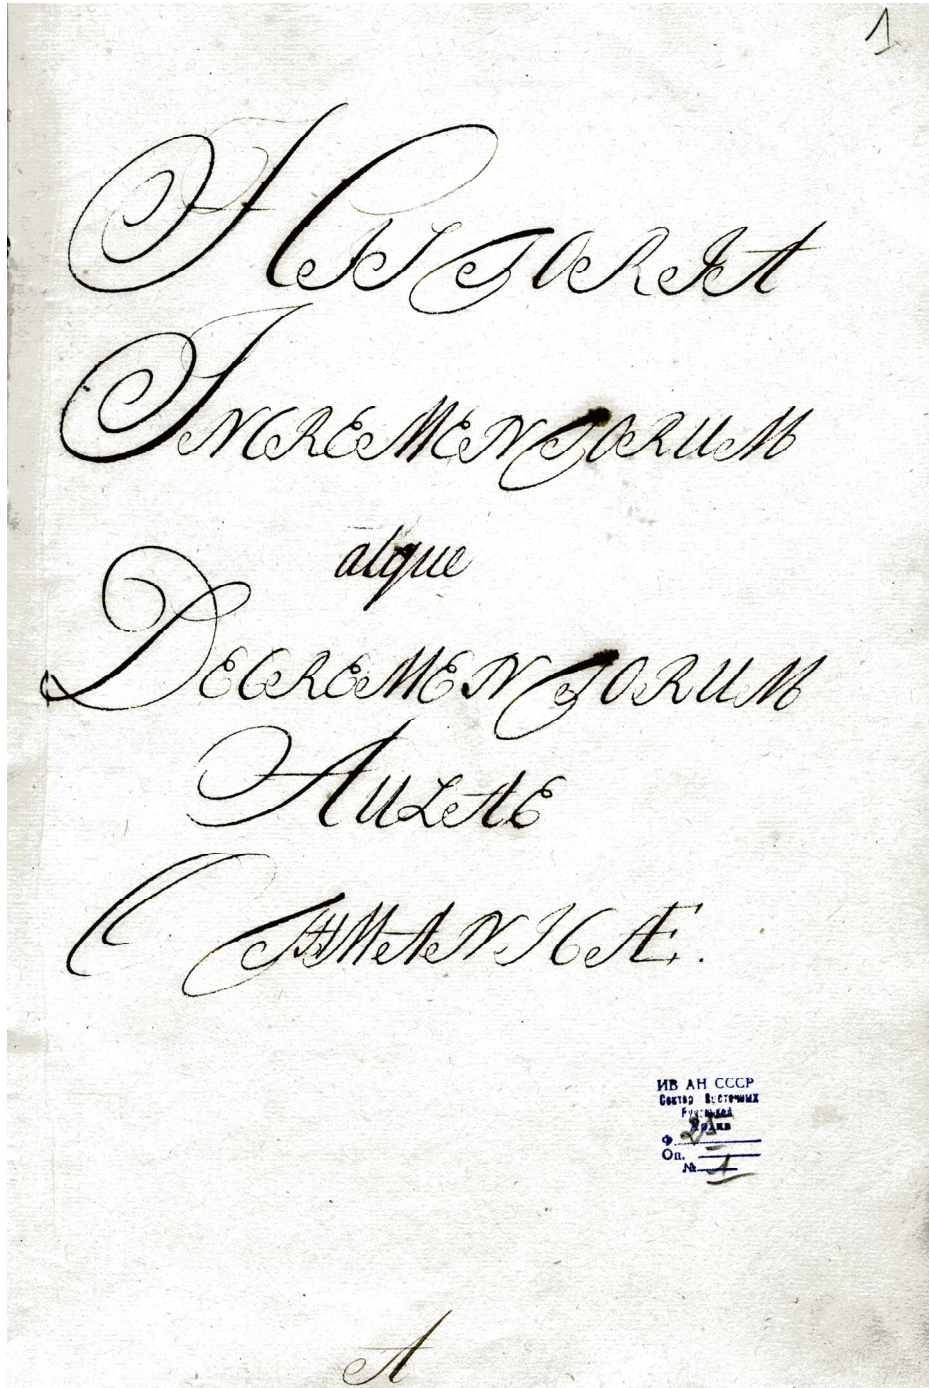 1
HISTORIA
INCREMENTORUM
atque
DECREMENTORUM
AULAE
OTHMANICÆ.
ИВ АН СССР
Сектор Восточных
Рукописей
Архив
Ф. 25
Оп.
№ 1
A